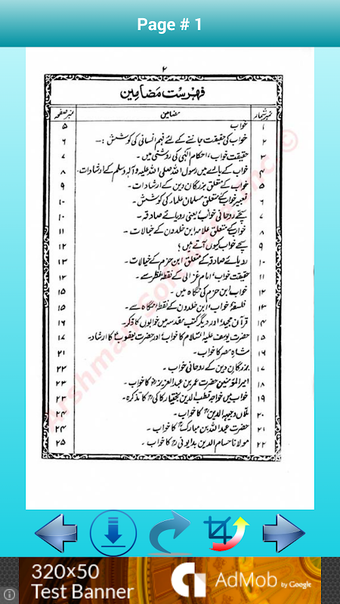 Page # 1
۲
فہرست مضامین
نمبر شمار مضامین نمبر صفحہ
۱ خواب ۵
۲ خواب کی حقیقت جاننے کے لئے فہم انسانی کی کوشش :- ۶
۳ حقیقت خواب، احکام الٰہی کی روشنی میں - ۷
۴ خواب کے بارے میں رسول اللہ صلی اللہ علیہ وآلہ وسلم کے ارشادات - ۸
۵ خواب کے متعلق بزرگان دین کے ارشادات - ۹
۶ تعبیر خواب کے متعلق مسلمان علماء کی کوشش - ۱۰
۷ سچے روحانی خواب یعنی رویائے صادقہ - ۱۰
۸ خواب کے متعلق علامہ ابن خلدون کے خیالات - ۱۱
۹ سچے خواب کیوں آتے ہیں؟ ۱۲
۱۰ رویائے صادقہ کے متعلق ابن حزم کے خیالات - ۱۳
۱۱ حقیقت خواب، امام غزالی کے نقطۂ نظر سے - ۱۲
۱۲ خواب ابن حزم کی نگاہ میں - ۱۵
۱۳ فلسفۂ خواب، ابن خلدون کے نقطۂ نگاہ سے - ۱۵
۱۴ قرآن مجید اور دیگر کتب مقدسہ میں خوابوں کا ذکر - ۱۶
۱۵ حضرت یوسف علیہ السلام کا خواب اور حضرت یعقوب کا ارشاد - ۱۷
۱۶ شاہ مصر کا خواب - ۲۱
۱۷ بزرگان دین کے روحانی خواب - ۲۲
۱۸ امیر المؤمنین حضرت عمر بن عبد العزیز کا خواب - ۲۳
۱۹ خواب میں خواجہ قطب الدین بختیار کاکی کا تذکرہ - ۲۳
۲۰ وجیہ الدین کا خواب - ۲۲
۲۱ حضرت عبد اللہ بن مبارک کا خواب - ۲۴
۲۲ مولانا حسام الدین بدایونی کا خواب - ۲۵
320x50
Test Banner
AdMob by Google